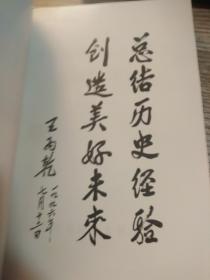 总结历史经验
创造美好未来
王丙乾
一九九六年
七月十二日